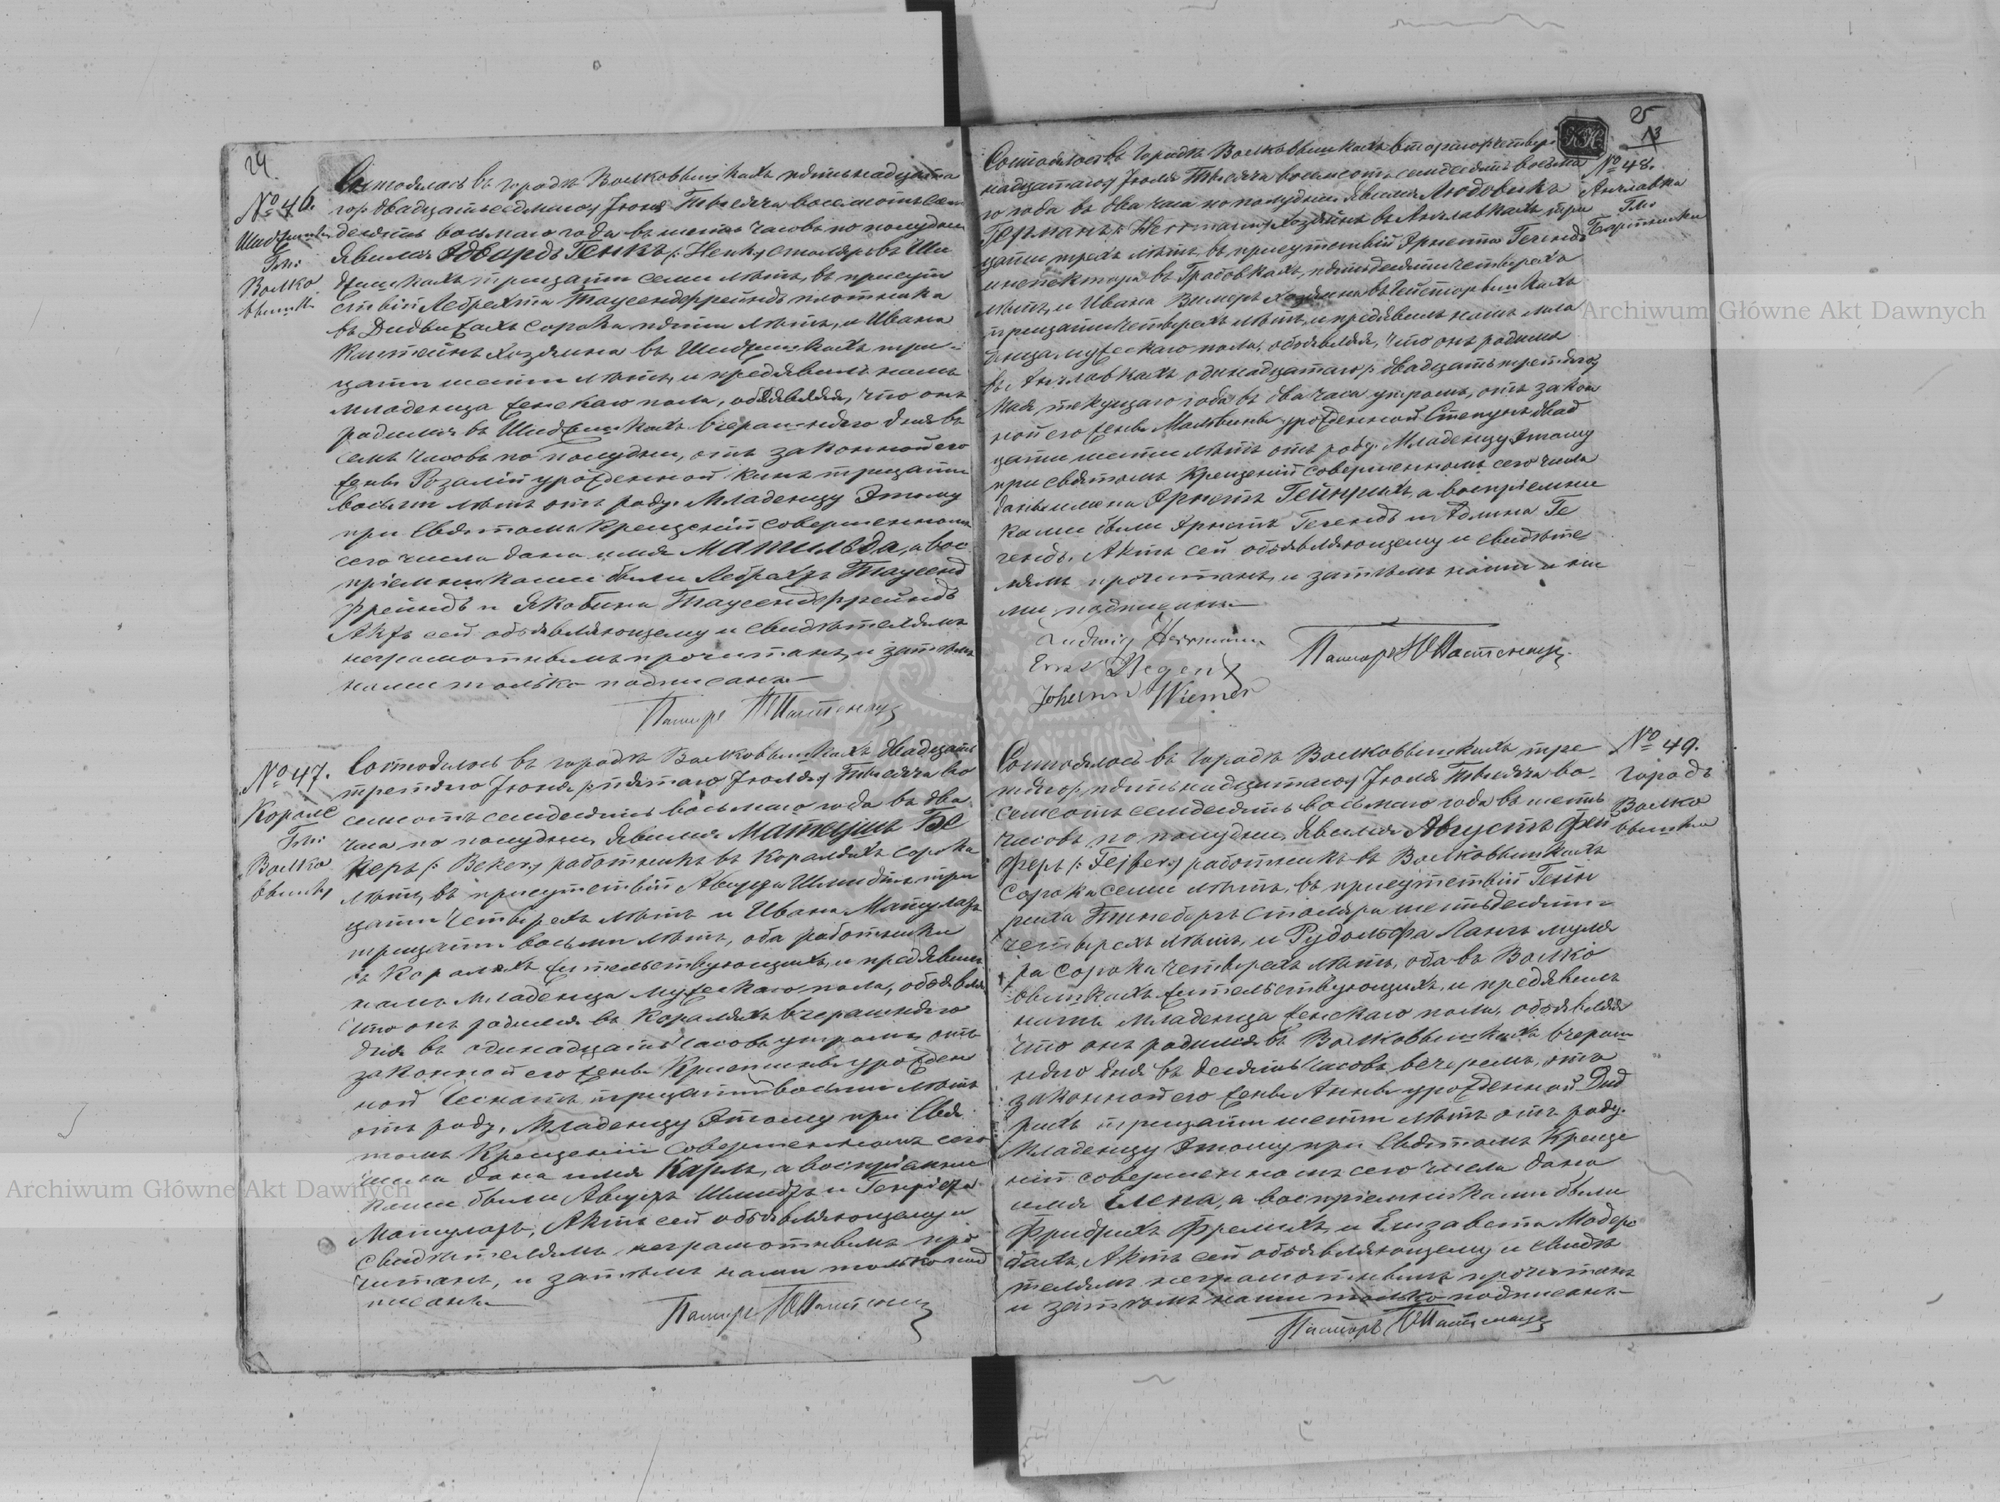 24
№ 46.
Волко
Состоялось въ городѣ Волковышкахъ пятнадцатаго
(двадцать седьмаго) Іюня Тысяча восемьсотъ семь
десятъ восьмаго года въ шесть часовъ по полудни
Явился Эдвардъ Генкъ (: Henk:) столяръ въ Ши
тридцати семи лѣтъ, въ присут
ствіи Лебрехта Таусендфрейндъ плотника
въ сорока пяти лѣтъ, и Ивана
хозяина въ три-
цати шести лѣтъ, и предъявилъ намъ
младенца женскаго пола, объявляя, что онъ
родился въ вчерашняго дня въ
семь часовъ по полудни, отъ законной его
жены Розаліи урожденной тридцати
восьми лѣтъ отъ роду. Младенцу Этому
при Святомъ Крещеніи совершенномъ
сего числа дано имя Матильда, а вос-
пріемниками были Лебрехтъ Таусенд
фрейндъ и Якобина Таусендфрейндъ
Актъ сей объявляющему и свидѣтелямъ
неграмотнымъ прочитанъ, и затѣмъ
нами только подписанъ.
Пасторъ
№ 47.
Корале
Гми
Волко
вышки
Состоялось въ городѣ Волковышкахъ двадцать
третьяго Іюня (пятаго Іюля) Тысяча во
семьсотъ семьдесятъ восьмаго года въ два
часа по полудни, Явился Матеушъ Бе
керъ (: Beker:) работникъ въ Кораляхъ сорока
лѣтъ, въ присутствіи Августа Шмидтъ три
цати четырехъ лѣтъ и Ивана Матулатъ
тридцати восьми лѣтъ, оба работники
въ Кораляхъ жительствующихъ, и предъявилъ
намъ младенца мужескаго пола, объявляя
что онъ родился въ Кораляхъ вчерашняго
дня въ одинадцать часовъ утромъ, отъ
законной его жены Кристины урожден
ной тридцати восьми лѣтъ
отъ роду. Младенцу Этому при Свя
томъ Крещеніи совершенномъ сего
числа дано имя Карлъ, а воспріемни
ками были Августъ Шмидтъ и
Матулатъ, Актъ сей объявляющему и
свидѣтелямъ неграмотнымъ про
читанъ, и затѣмъ нами только под
писанъ.
Пасторъ
25
13
КК
№ 48.
Анчлавки
Гми
Бартники
Состоялось въ городѣ Волковышкахъ втораго (четыр
надцатаго) Іюля Тысяча восемьсотъ семьдесятъ восьма
го года въ два часа по полудни, явился Людовикъ
Германъ (: Herrmann:) хозяинъ въ Анчлавкахъ три
цати трехъ лѣтъ, въ присутствіи Эрнста Гегендъ
въ Грабовкахъ, пятьдесяти четырехъ
лѣтъ, и Ивана Вимеръ хозяина въ
тридцати четырехъ лѣтъ, и предъявилъ намъ мла
денца мужескаго пола, объявляя, что онъ родился
въ Анчлавкахъ одинадцатаго (двадцать третьяго)
Мая текущаго года въ два часа утромъ, отъ закон
ной его жены Мальвины урожденной двад
цати шести лѣтъ отъ роду. Младенцу Этому
при Святомъ Крещеніи совершенномъ сего числа
даны имена Эрнстъ Гейнрихъ, а воспріемни
ками были Эрнстъ Гегендъ и Ге
гендъ. Актъ сей объявляющему и свидѣте
лямъ прочитанъ, и затѣмъ нами и ни
ми подписанъ.
Ludwig Herrmann
Ernst Degent
Johann Wiemer
Пасторъ
№ 49.
городъ
Волко
вышки
Состоялось въ городѣ Волковышкахъ тре
тьяго (пятнадцатаго) Іюля Тысяча во-
семьсотъ семьдесятъ восьмаго года въ шесть
часовъ по полудни, Явился Августъ Фей
феръ (: Fejfer:) работникъ въ Волковышкахъ
сорока семи лѣтъ, въ присутствіи Генн
риха столяра шестьдесяти-
четырехъ лѣтъ, и Рудольфа Лангъ муля
ра сорока четырехъ лѣтъ, оба въ Волко
вышкахъ жительствующихъ, и предъявилъ
намъ младенца женскаго пола, объявляя
что онъ родился въ Волковышкахъ вчераш
няго дня въ десять часовъ вечеромъ, отъ
законной его жены Анны урожденной Дид
рихъ тридцати шести лѣтъ отъ роду.
Младенцу Этому при Святомъ Креще
ніи совершенномъ сего числа дано
имя Елена, а воспріемниками были
Фридрихъ и Елизавета
Актъ сей объявляющему и свидѣ
телямъ неграмотнымъ прочитанъ
и затѣмъ нами только подписанъ.
Пасторъ
Archiwum Główne Akt Dawnych
Archiwum Główne Akt Dawnych